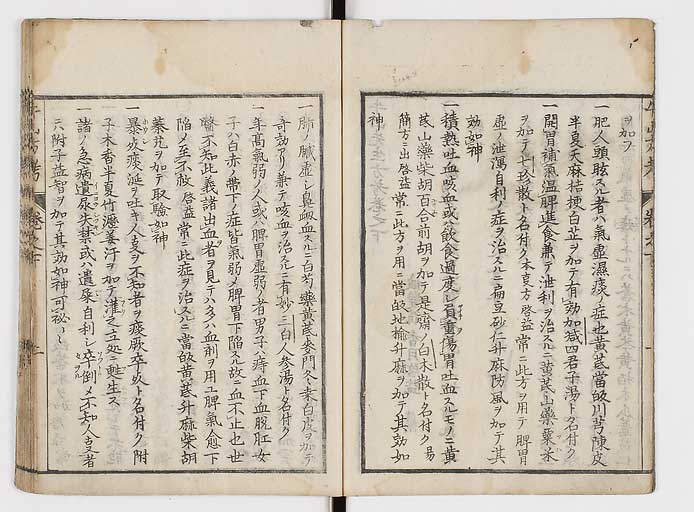 ヲ加フ
一肥人頭眩スル者ハ氣虚濕痰ノ症也黄芪當皈川芎陳皮
半夏天麻桔梗白芷ヲ加テ有効加減四君子湯ト名付ク
一開胃補氣温脾進食兼テ泄利ヲ治スルニ黄芪山藥粟米
ヲ加テ七珍散ト名付ク本夏方啓益常ニ此方ヲ用テ脾胃
虚ノ泄瀉自利ノ症ヲ治スルニ扁豆砂仁升麻防風ヲ加テ其
効如神
一積熱吐血咳血或ハ飲食過度シ負重傷胃吐血スルモノニ黄
芪山藥柴胡百合前胡ヲ加テ是ヲ白木散ト名付ク易
簡方ニ出啓益常ニ此方ヲ用ニ當皈地榆升麻ヲ加テ其効如
神
一肺ノ臟虚シ鼻衂血スルニ白芍藥黄芪麥門冬桑白皮ヲ加テ
奇効アリ兼テ咳血ヲ治スルニ有妙三白人参湯ト名付ク
一年高氣弱ノ人或ハ脾胃虚弱ノ者男子ハ痔血下血脱肛女
子ハ白赤ノ帶下ノ症皆氣弱メ脾胃下陷スル故ニ血不止也世
醫不知此義諸出血者ヲ見テハ多ハ血剤ヲ用ユ脾氣愈下
陷メ至不救啓益常ニ此症ヲ治スルニ當皈黄芪升麻柴胡
蓁艽ヲ加テ取驗如神
一暴ニ痰涎ヲ吐キ人支ヲ不知者ヲ痰厥卒ト名付ク附
子木香半夏竹瀝姜汁ヲ加テ灌之立処ニ甦生ス
一諸ノ急病遺尿失禁或ハ遺尿自利シ卒倒メ不知人支者
ニハ附子益智ヲ加テ其効如神可秘々々